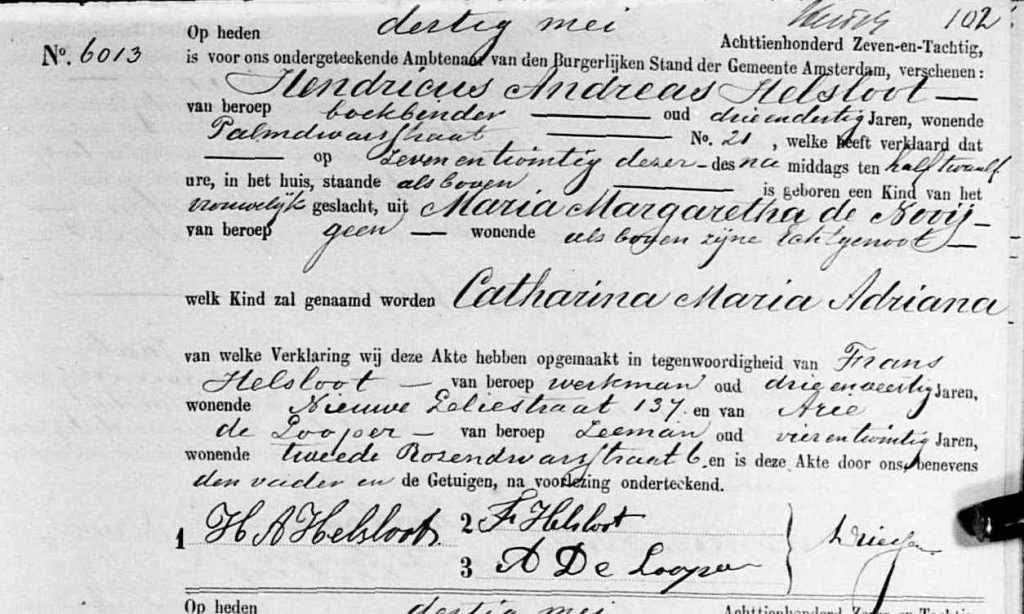 102
Op heden dertig mei
Achttienhonderd Zeven-en-Tachtig,
No. 6013
is voor ons ondergeteekende Ambtenaar van den Burgerlijken Stand der Gemeente Amsterdam, verschenen:
Hendricus Andreas Helsloot —
van beroep boekbinder — oud drie en dertig Jaren, wonende
Palmdwarsstraat — No. 21, welke heeft verklaard dat
— op Zeven en twintig dezer - des na middags ten half twaalf
ure, in het huis, staande als boven — is geboren een Kind van het
vrouwelijk geslacht, uit Maria Margaretha de Nooij -
van beroep geen — wonende als boven zijne Echtgenoot —
welk Kind zal genaamd worden Catharina Maria Adriana
van welke Verklaring wij deze Akte hebben opgemaakt in tegenwoordigheid van Frans
Helsloot — van beroep werkman oud drie en veertig Jaren,
wonende Nieuwe Leliestraat 137. en van Arie
de Looper — van beroep Zeeman oud vier en twintig Jaren,
wonende tweede Rozendwarsstraat 6. en is deze Akte door ons, benevens
den vader en de Getuigen, na voorlezing onderteekend.
1 H A Helsloot. 2 F Helsloot
3 A De Looper
Op heden dertig mei
Achttienhonderd Zeven-en-Tachtig